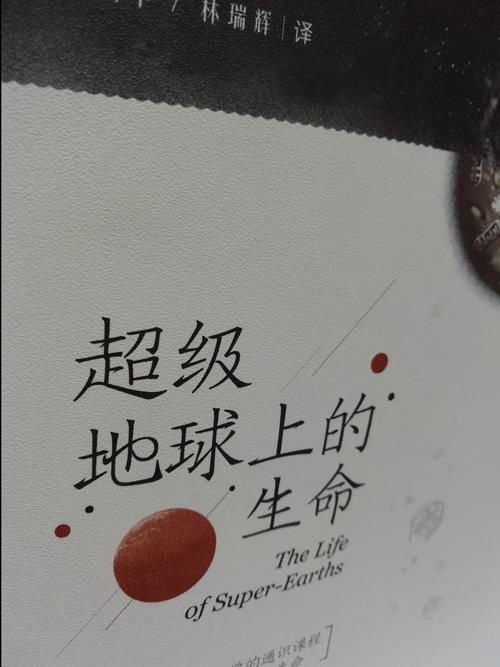 林瑞辉 译
超级
地球上的
生命
The Life
of Super-Earths
的通识课程
生命